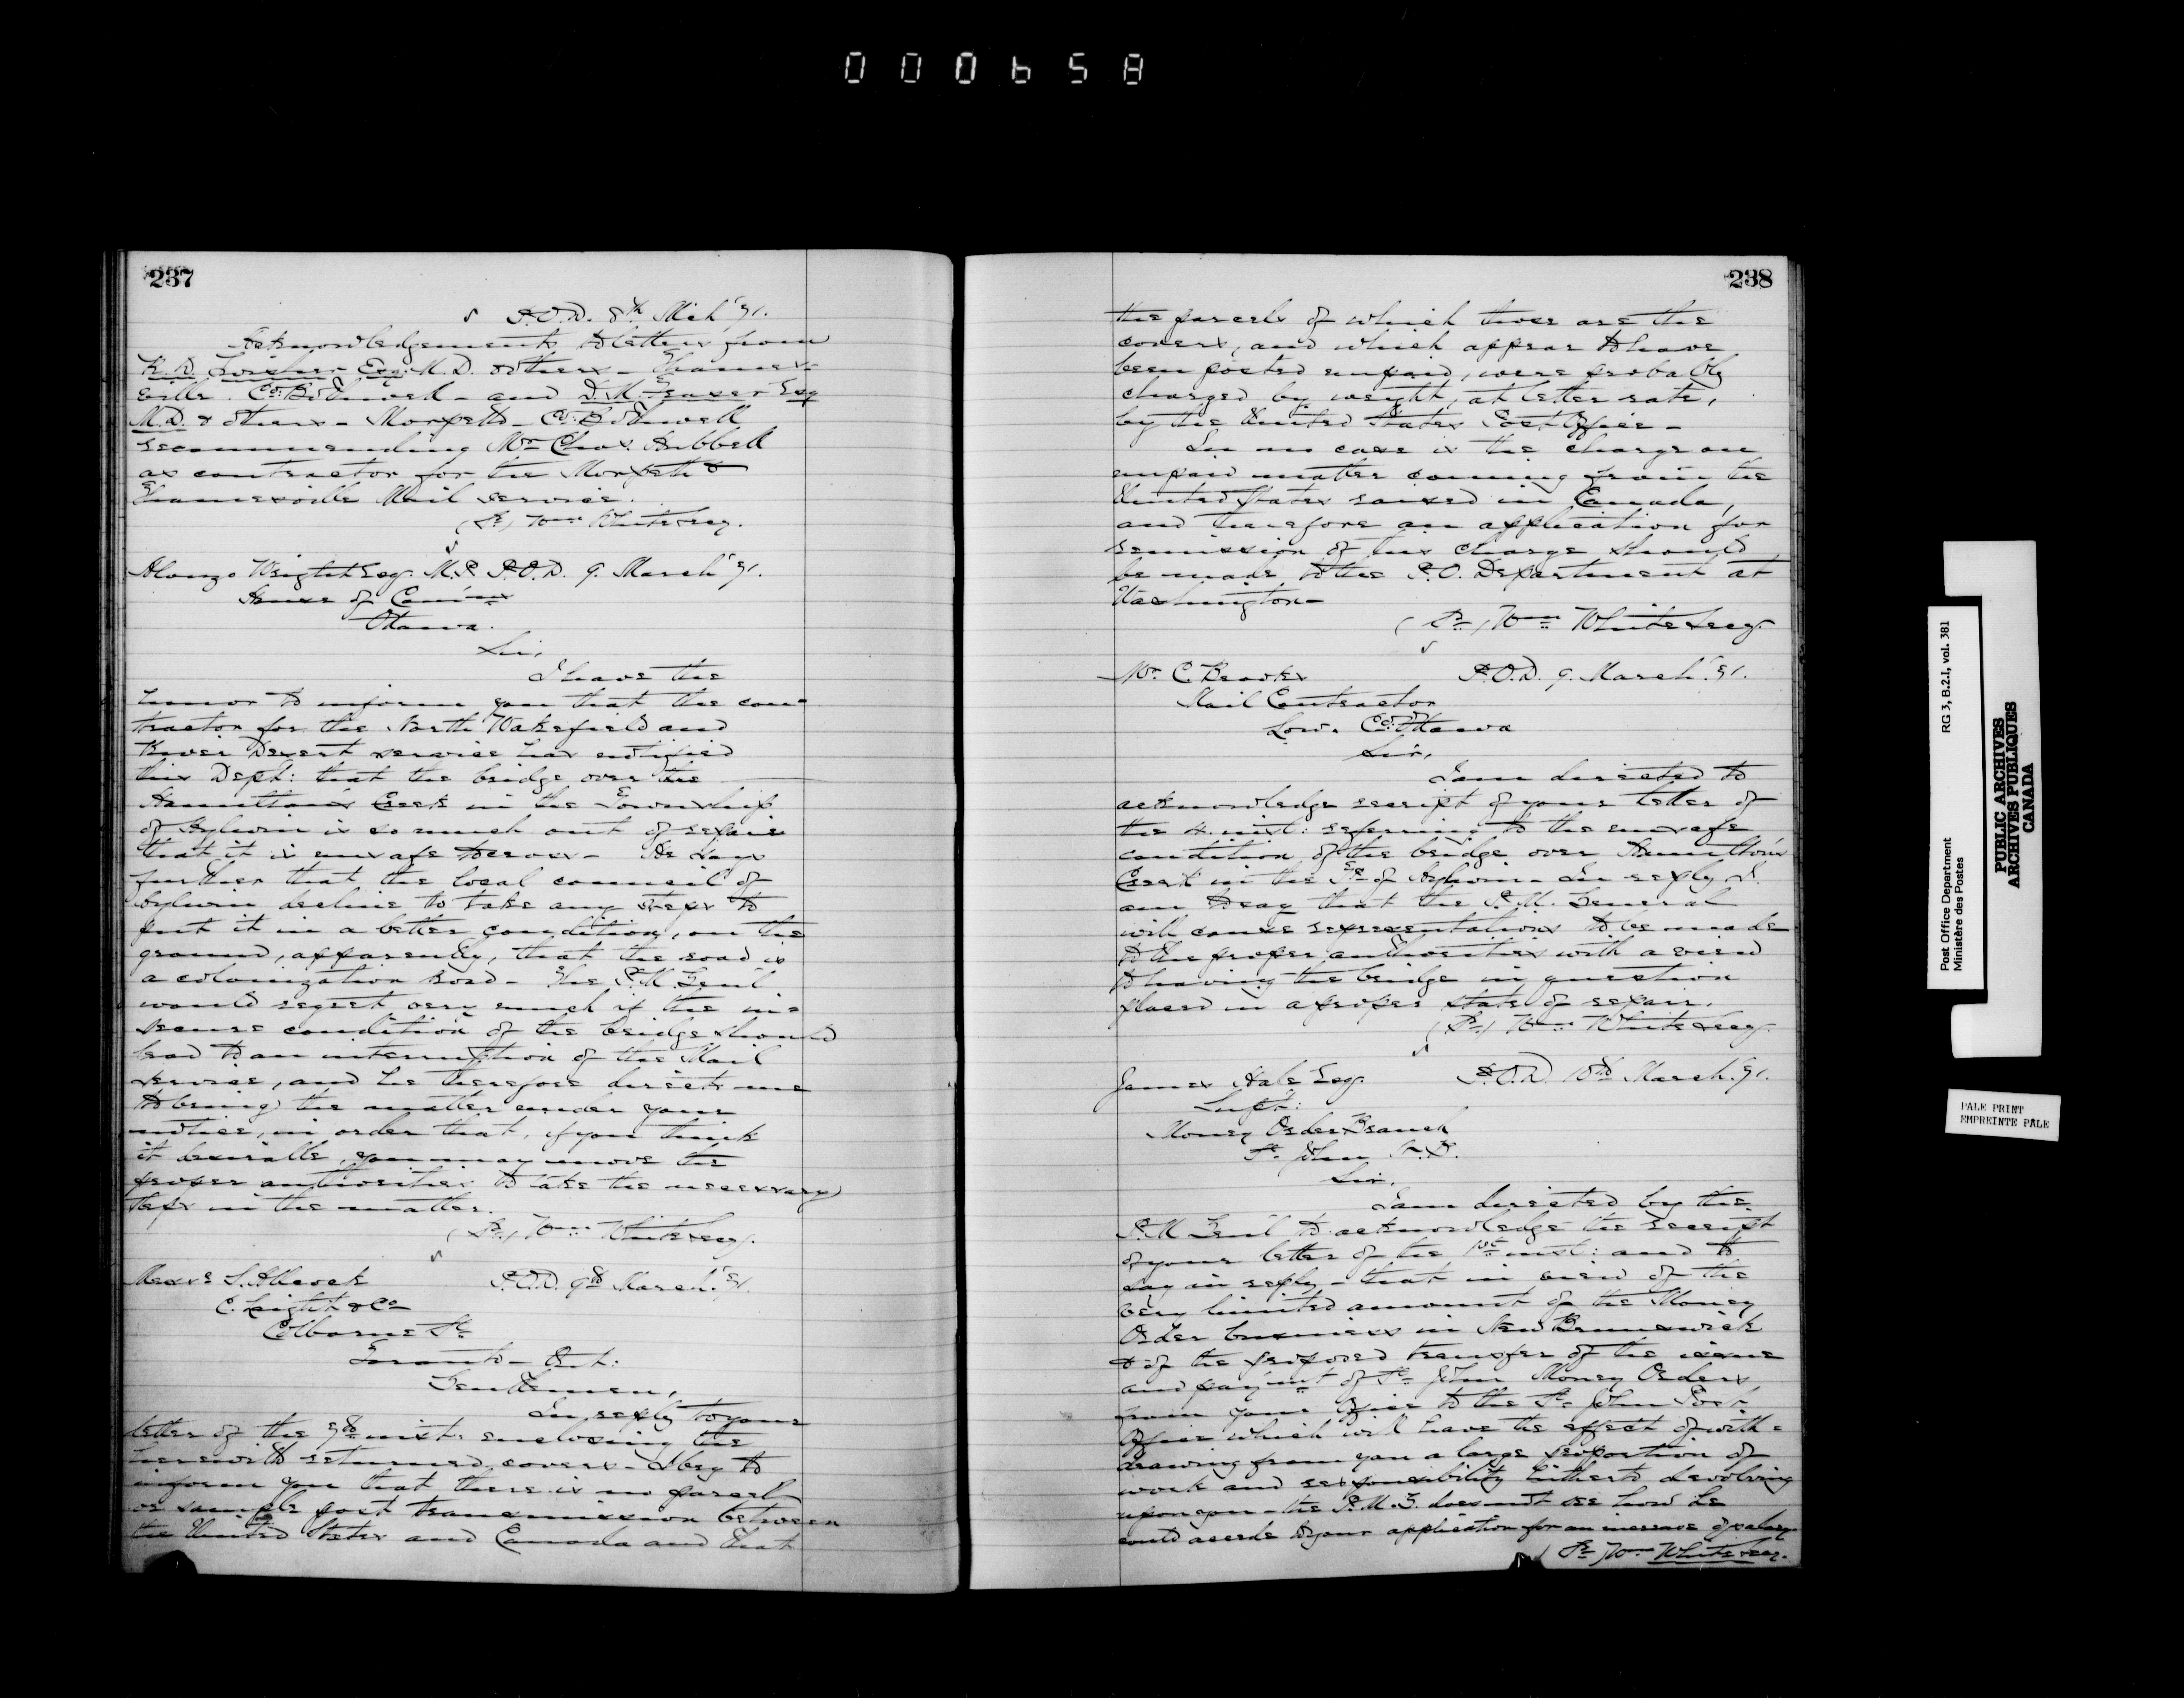 000658
237
P.O.D. 8th Mch '71.
Acknowledgements to letters from
K. D. Esq. M.D. & others - Thames-
ville. Co: Bothwell - and D. M. Fraser Esq
M.D. & others - Morpeth - Co: Bothwell
recommending Mr. Chas. Hubbell
as contractor for the Morpeth &
Thamesville Mail service.
(Sd.) Wm. White Secy.
Alonzo Wright Esq. M.P. P.O.D. 9. March '71.
House of Comm:ns
Ottawa.
Sir,
I have the
honor to inform you that the con=
tractor for the North Wakefield and
River Desert service has notified
this Dept: that the bridge over the
Hamilton's Creek in the Township
of Aylwin is so much out of repair
that it is unsafe to cross - He says
further that the local council of
Aylwin decline to take any steps to
put it in a better condition, on the
ground, apparently, that the road is
a colonization Road - The P.M. Genl
would regret very much if the in=
secure condition of the bridge should
lead to an interruption of the Mail
service, and he therefore directs me
to bring the matter under your
notice, in order that, if you think
it desirable, you may move the
proper authorities to take the necessary
steps in the matter.
(Sd.) Wm. White Secy.
Messrs S. Allcock P.O.D. 9th March '71.
C. Laight & Co
Colborne St.
Toronto - Ont:
Gentlemen,
In reply to your
letter of the inst: enclosing the
herewith returned covers - I beg to
inform you that there is no parcel
or sample post transmission between
the United States and Canada and that
238
the parcels of which those are the
covers, and which appear to have
been posted unpaid, were probably
charged by weight, at letter rate,
by the United States Post Office -
In no case is the charge on
unpaid matter coming from the
United States raised in Canada,
and therefore an application for
remission of this charge should
be made to the P.O. Department at
Washington -
(Sd.) Wm. White Secy.
Mr. C. Brooks P.O.D. 9. March '71.
Mail Contractor
Low. Co. Ottawa
Sir,
I am directed to
acknowledge receipt of your letter of
the 4. inst: referring to the unsafe
condition of the bridge over Hamilton's
Creek in the Tp. of Aylwin - In reply I
am to say that the P.M. General
will cause representations to be made
to the proper authorities with a view
to having the bridge in question
placed in a proper state of repair.
(Sd.) Wm. White Secy.
James Hale Esq. P.O.D. 10th March '71.
Supt:
Money Order Branch
St. John N.B.
Sir,
I am directed by the
P.M. Genl to acknowledge the receipt
of your letter of the 1st inst: and to
say in reply - that in view of the
very limited amount of the Money
Order business in New Brunswick
& of the proposed transfer of the issue
and paymnt of St. John Money Orders
from your Office to the St. John Post
Office which will have the effect of with=
drawing from you a large proportion of
work and responsibility hitherto devolving
upon you - the P.M.G. does not see how he
could accede to your application for an increase of salary
(Sd.) Wm. White Secy.
Post Office Department RG 3, B.2.I, vol. 381
Ministère des Postes
PUBLIC ARCHIVES
ARCHIVES PUBLIQUES
CANADA
PALE PRINT
EMPREINTE PALE